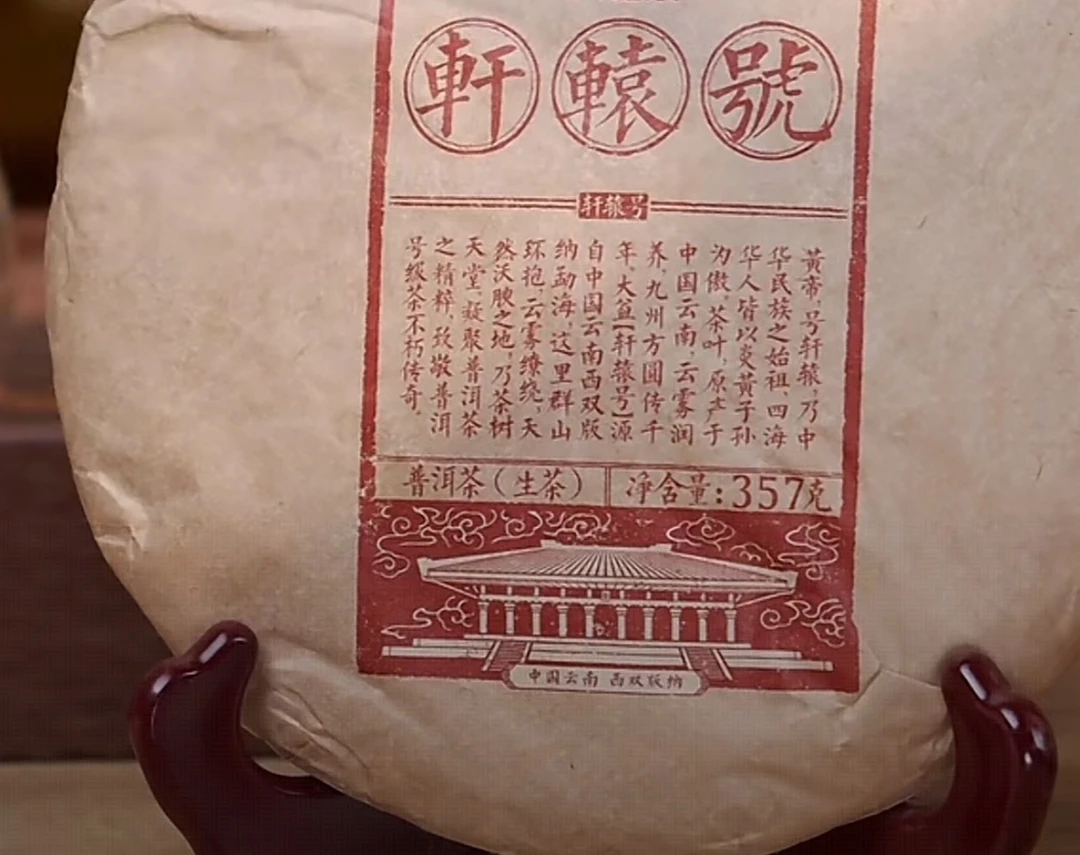 軒轅號
轩辕号
黃帝,号轩辕,乃中
华民族之始祖,四海
华人皆以炎黄子孙
为傲,茶叶,原产于
中国云南,云雾润
养,九州方圆传千
年,大益【轩辕号】源
自中国云南西双版
纳勐海,这里群山
环抱,云雾缭绕,天
然沃腴之地,乃茶树
天堂,凝聚普洱茶
之精粹,致敬普洱
号级茶不朽传奇。
普洱茶(生茶)
净含量:357克
中国云南 西双版纳